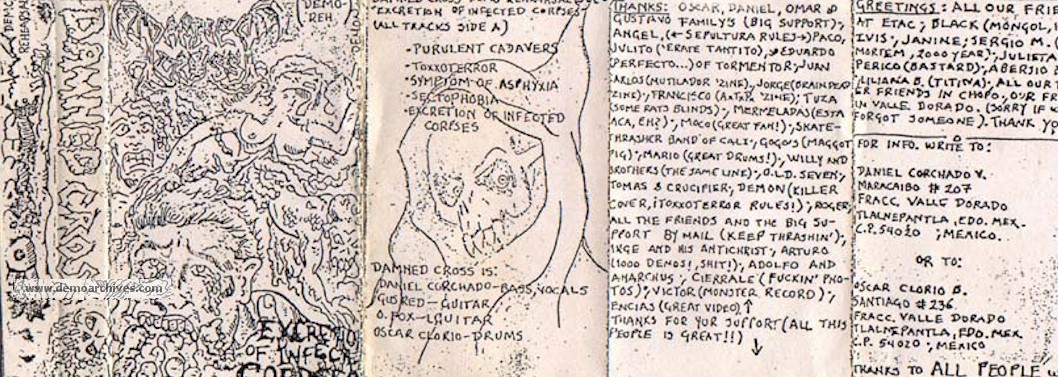 DEMO-
REH.
DAMNED CROSS
EXCRETIO
OF INFECT
www.demoarchives.com
EXCRETION OF INFECTED CORPSES
(ALL TRACKS SIDE A)
-PURULENT CADAVERS
-TOXXOTERROR
-SYMPTOM OF ASPHYXIA
-SECTOPHOBIA
-EXCRETION OF INFECTED
CORPSES
DAMNED CROSS IS:
DANIEL CORCHADO-BASS, VOCALS
GUS RED-GUITAR
O. FOX-GUITAR
OSCAR CLORIO-DRUMS
THANKS: OSCAR, DANIEL, OMAR &
GUSTAVO FAMILY'S (BIG SUPPORT);
ANGEL, (SEPULTURA RULES) PACO,
JULITO (ERATE TANTITO), EDUARDO
(PERFECTO...) OF TORMENTOR; JUAN
CARLOS (MUTILADOR 'ZINE), JORGE (BRAIN DEAD
ZINE); FRANCISCO ('ZINE); TUZA
(SOME RATS BLINDS); MERMELADAS (ESTA
ACA, EH?); MOCO (GREAT FAN!); SKATE-
THRASHER BAND OF CALI; GOGUS (MAGGOT
PIG); MARIO (GREAT DRUMS!), WILLY AND
BROTHERS (THE SAME LINE), O.L.D. SEVEN;
TOMAS & CRUCIFIER, DEMON (KILLER
COVER, ¡TOXXOTERROR RULES!); ROGER,
ALL THE FRIENDS AND THE BIG SU-
PPORT BY MAIL (KEEP THRASHIN');
INGE AND HIS ANTICHRIST; ARTURO
(1000 DEMOS!, SHIT!); ADOLFO AND
ANARCHUS; CIERRALE (FUCKIN' PHO-
TOS); VICTOR (MONSTER RECORD);
ENCIAS (GREAT VIDEO)
THANKS FOR YOR SUPPORT (ALL THIS
PEOPLE IS GREAT!!)
GREETINGS: ALL OUR FRIE
AT ETAC; BLACK (MONGOL,
JANINE; SERGIO M. (
MORTEM, 2000 YEAR); JULIETA
PERICO (BASTARD), ABERSIO
LILIANA B. (TITIVA). ALL OUR
ER FRIENDS IN CHOPO. OUR FR
IN VALLE DORADO. (SORRY IF W
FORGOT SOMEONE). THANK YO
FOR INFO. WRITE TO:
DANIEL CORCHADO V.
MARACAIBO # 207
FRACC. VALLE DORADO
TLALNEPANTLA, EDO. MEX.
C.P. 54020 ; MEXICO.
OR TO:
OSCAR CLORIO B.
SANTIAGO # 236
FRACC. VALLE DORADO
TLALNEPANTLA, EDO. MEX
C.P. 54020 ; MEXICO
THANKS TO ALL PEOPLE